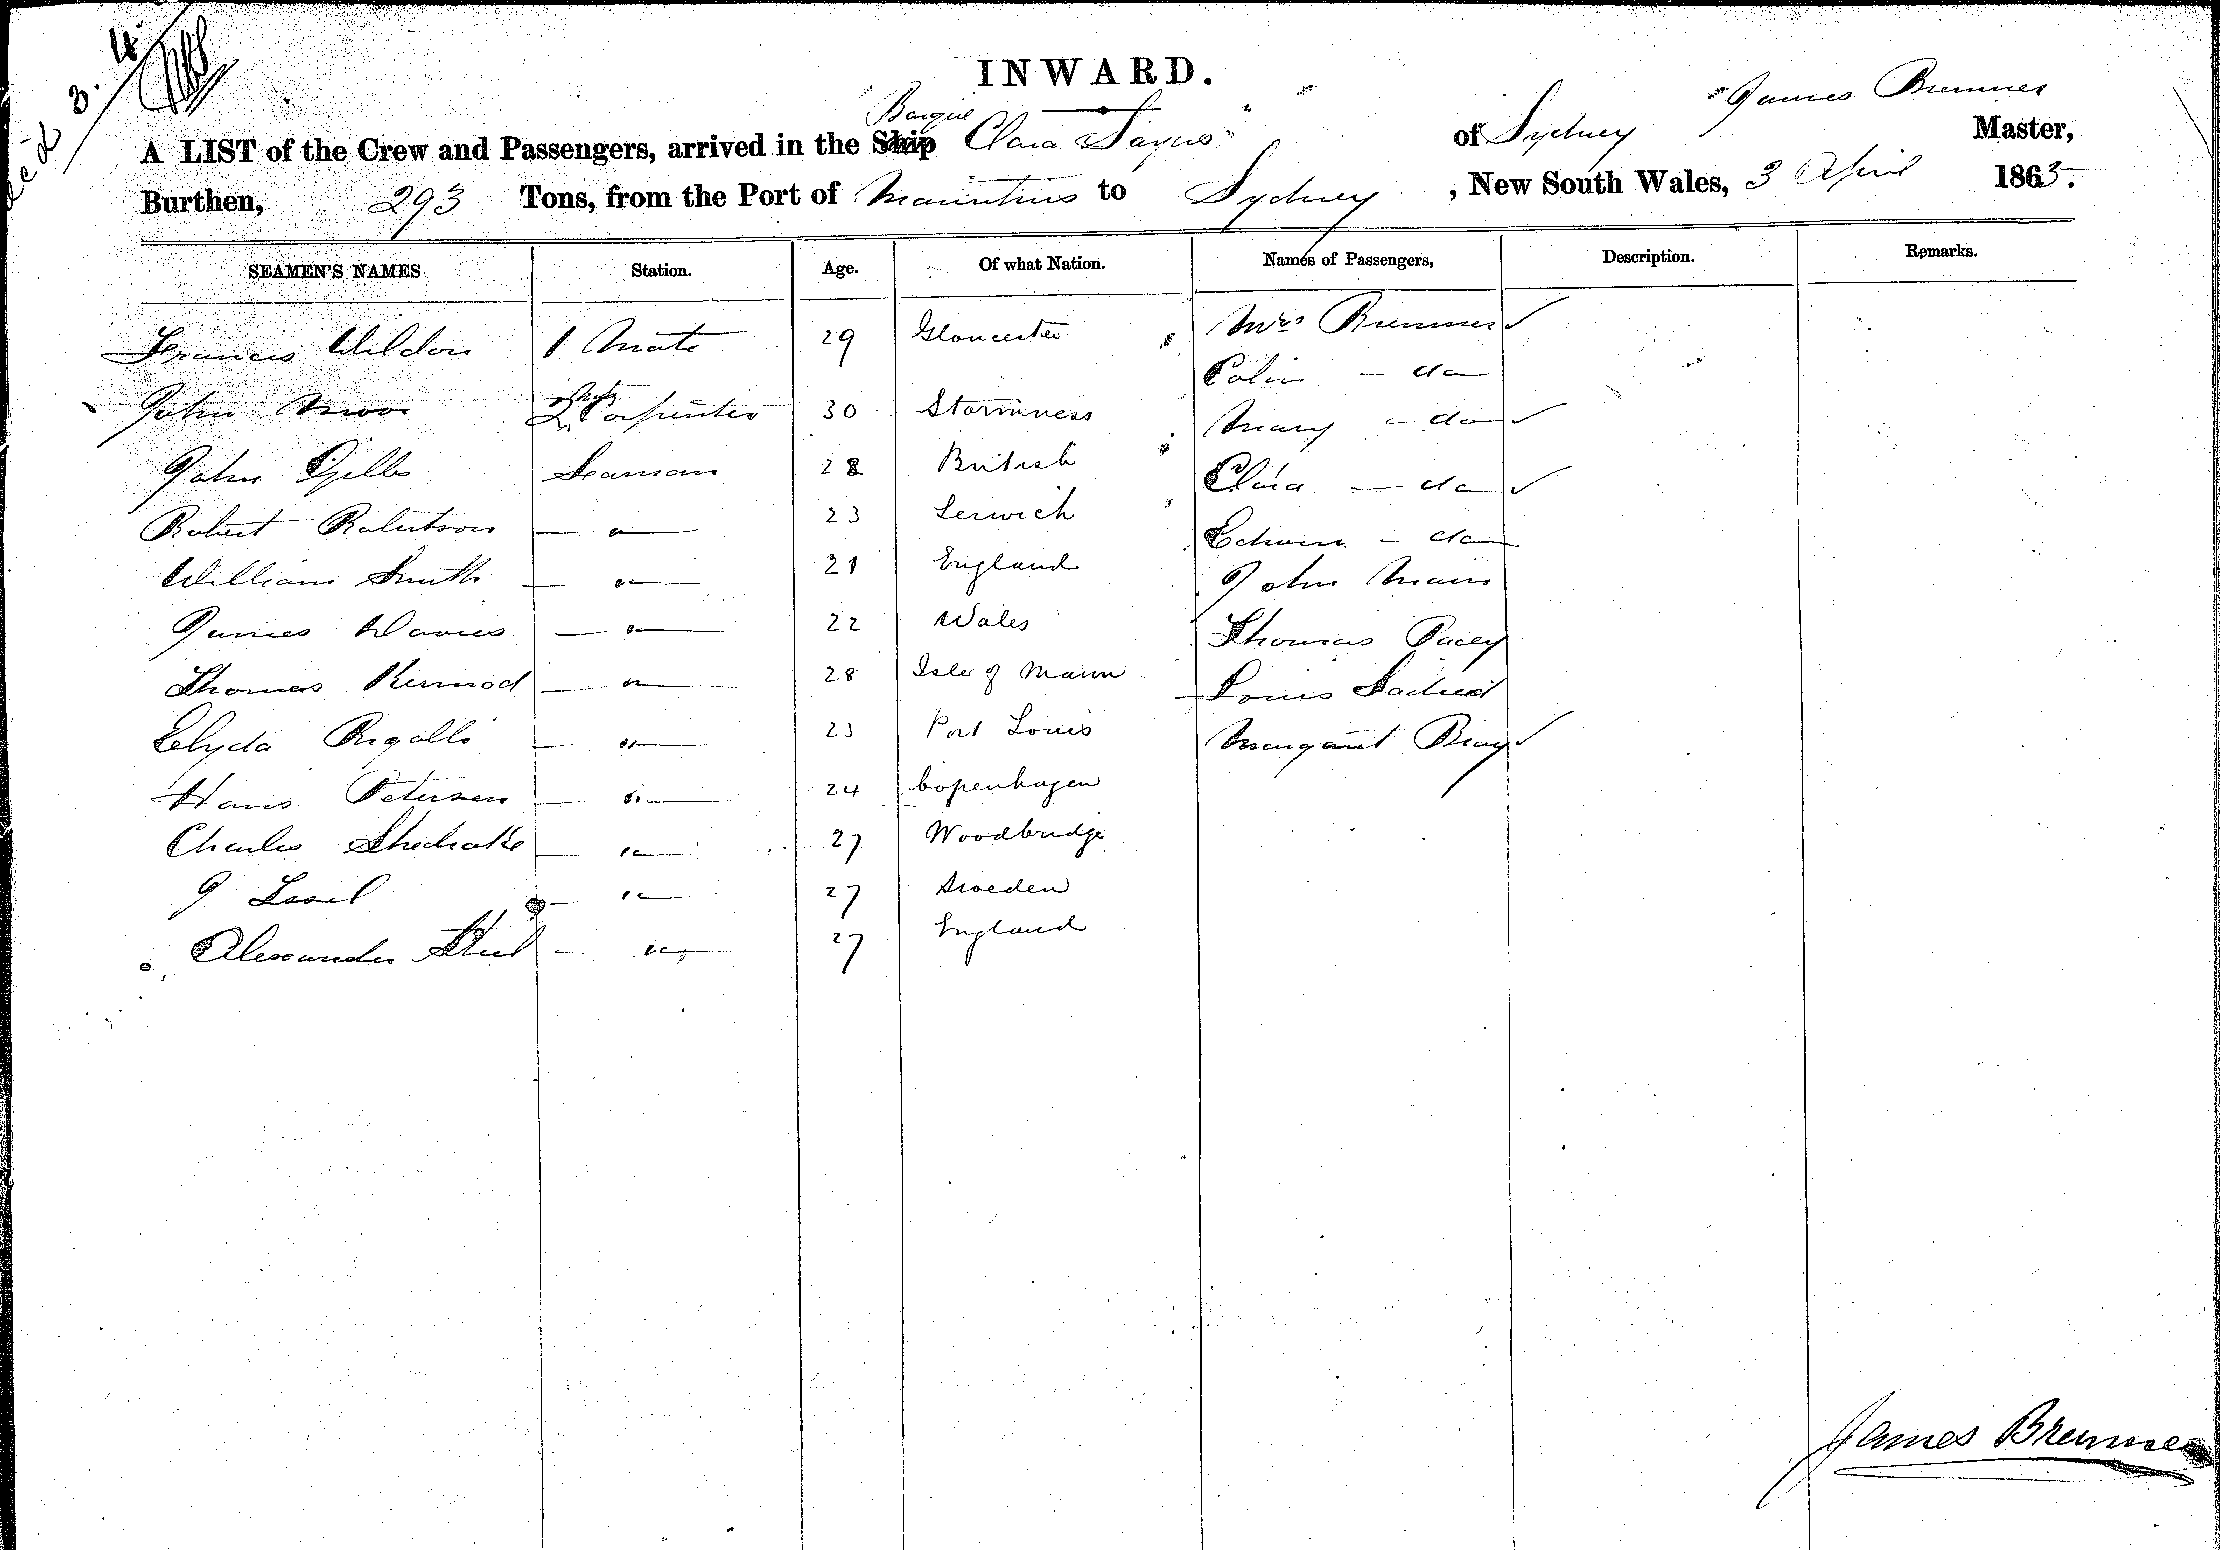 3.4
INWARD.
Barque
James Bremner
A LIST of the Crew and Passengers, arrived in the Ship Clara Sayers of Sydney Master,
Burthen, 293 Tons, from the Port of Mauritius to Sydney, New South Wales, 3 April 1863.
SEAMEN'S NAMES Station. Age. Of what Nation. Names of Passengers, Description. Remarks.
Francis Weldon 1 Mate 29 Gloucester Mrs Bremner
Colin - do
John Moor 2 Carpenter 30 Stormness Mary - do
John Gibb Seaman 28 British Clara - do
Robert Robertson 23 Lerwick Edwin - do
William Smith 21 England John Main
James Davies 22 Wales Thomas Pacey
Thomas Kermod 28 Isle of Mann Louis
Clyda Rigalli 23 Port Louis Margaret Bray
Hans Petersen 24 Copenhagen
Charles Shedrake 27 Woodbridge
27 Sweden
Alexander Steel 27 England
James Bremner